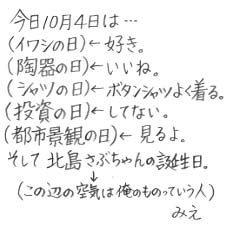 今日10月4日は…
(イワシの日)←好き。
(陶器の日)←いいね。
(シャツの日)←ボタンシャツよく着る。
(投資の日)←してない。
(都市景観の日)←見るよ。
そして北島さぶちゃんの誕生日。
↓
(この辺の空気は俺のものっていう人)
みえ